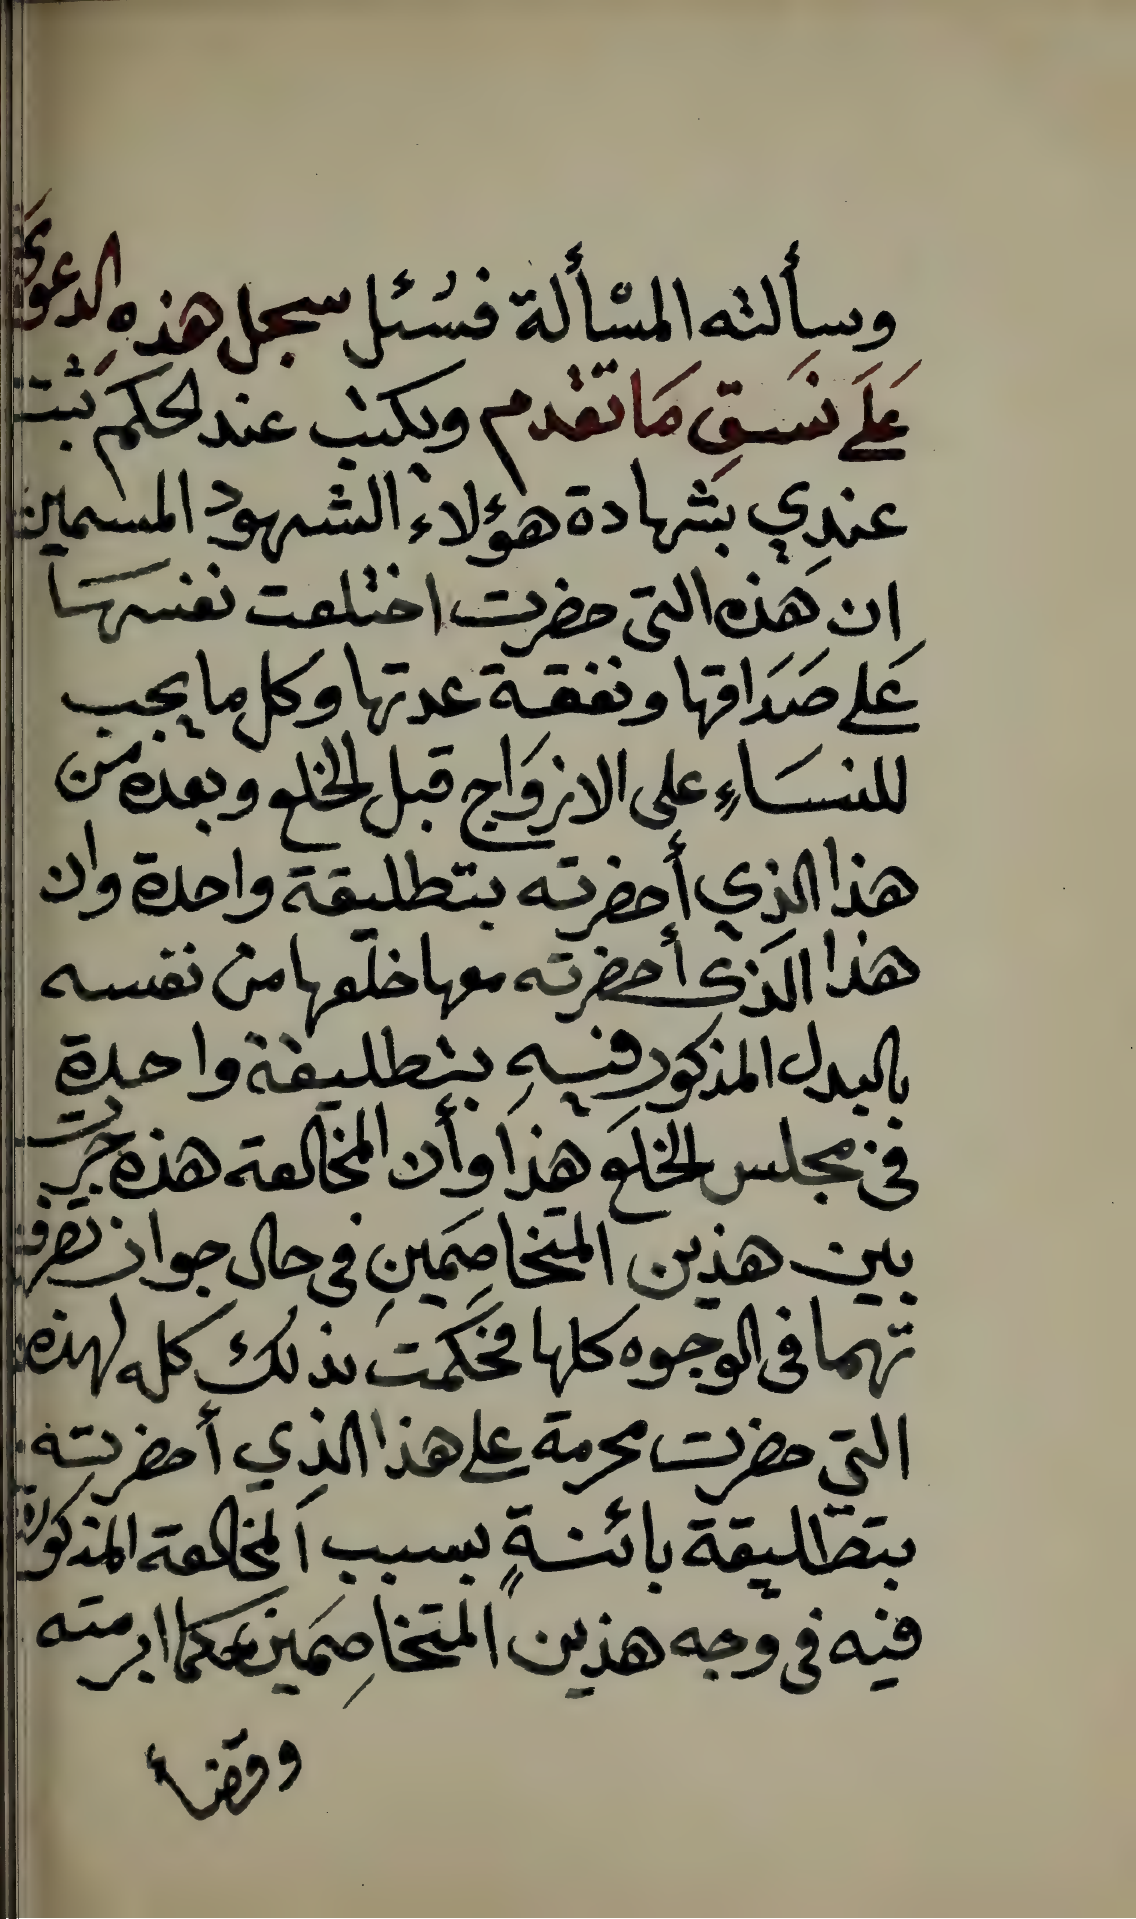 وسألته المسْألة فسُئل سجل هذه الدعوى
عَلَى نَسَقِ مَا تقدم ويكتب عند لحكم ثبت
عندِي بشهادة هؤلاء الشهود المسمين
ان هَذه التى حضرت اختلعت نفسهَا
عَلى صَدَاقها ونفقة عدتها وكل ما يجب
للنسَاءِ على الازوَاج قبل لخلع وبعده من
هذا الذي أحضرته بتطليقة واحدة وان
هذا الذى أحضرته معها خلعها من نفسه
بالبدل المذكور فيهِ بتطليقة واحدة
فى مجلس لخلَع هذا وأن المخالعة هذه جرت
بين هذين المتخاصِمَينِ فى حال جواز تصرفا
تهما فى الوجوه كلها فحَكمت بذلك كله لهذه
التي حضرت محرمة على هذا الذِي أحضرته
بتطليقة بائنةٍ بسبب المخالعة المذكورة
فيه فى وجه هذين المتخاصِمَين حكما ابرمته
وقضاءً